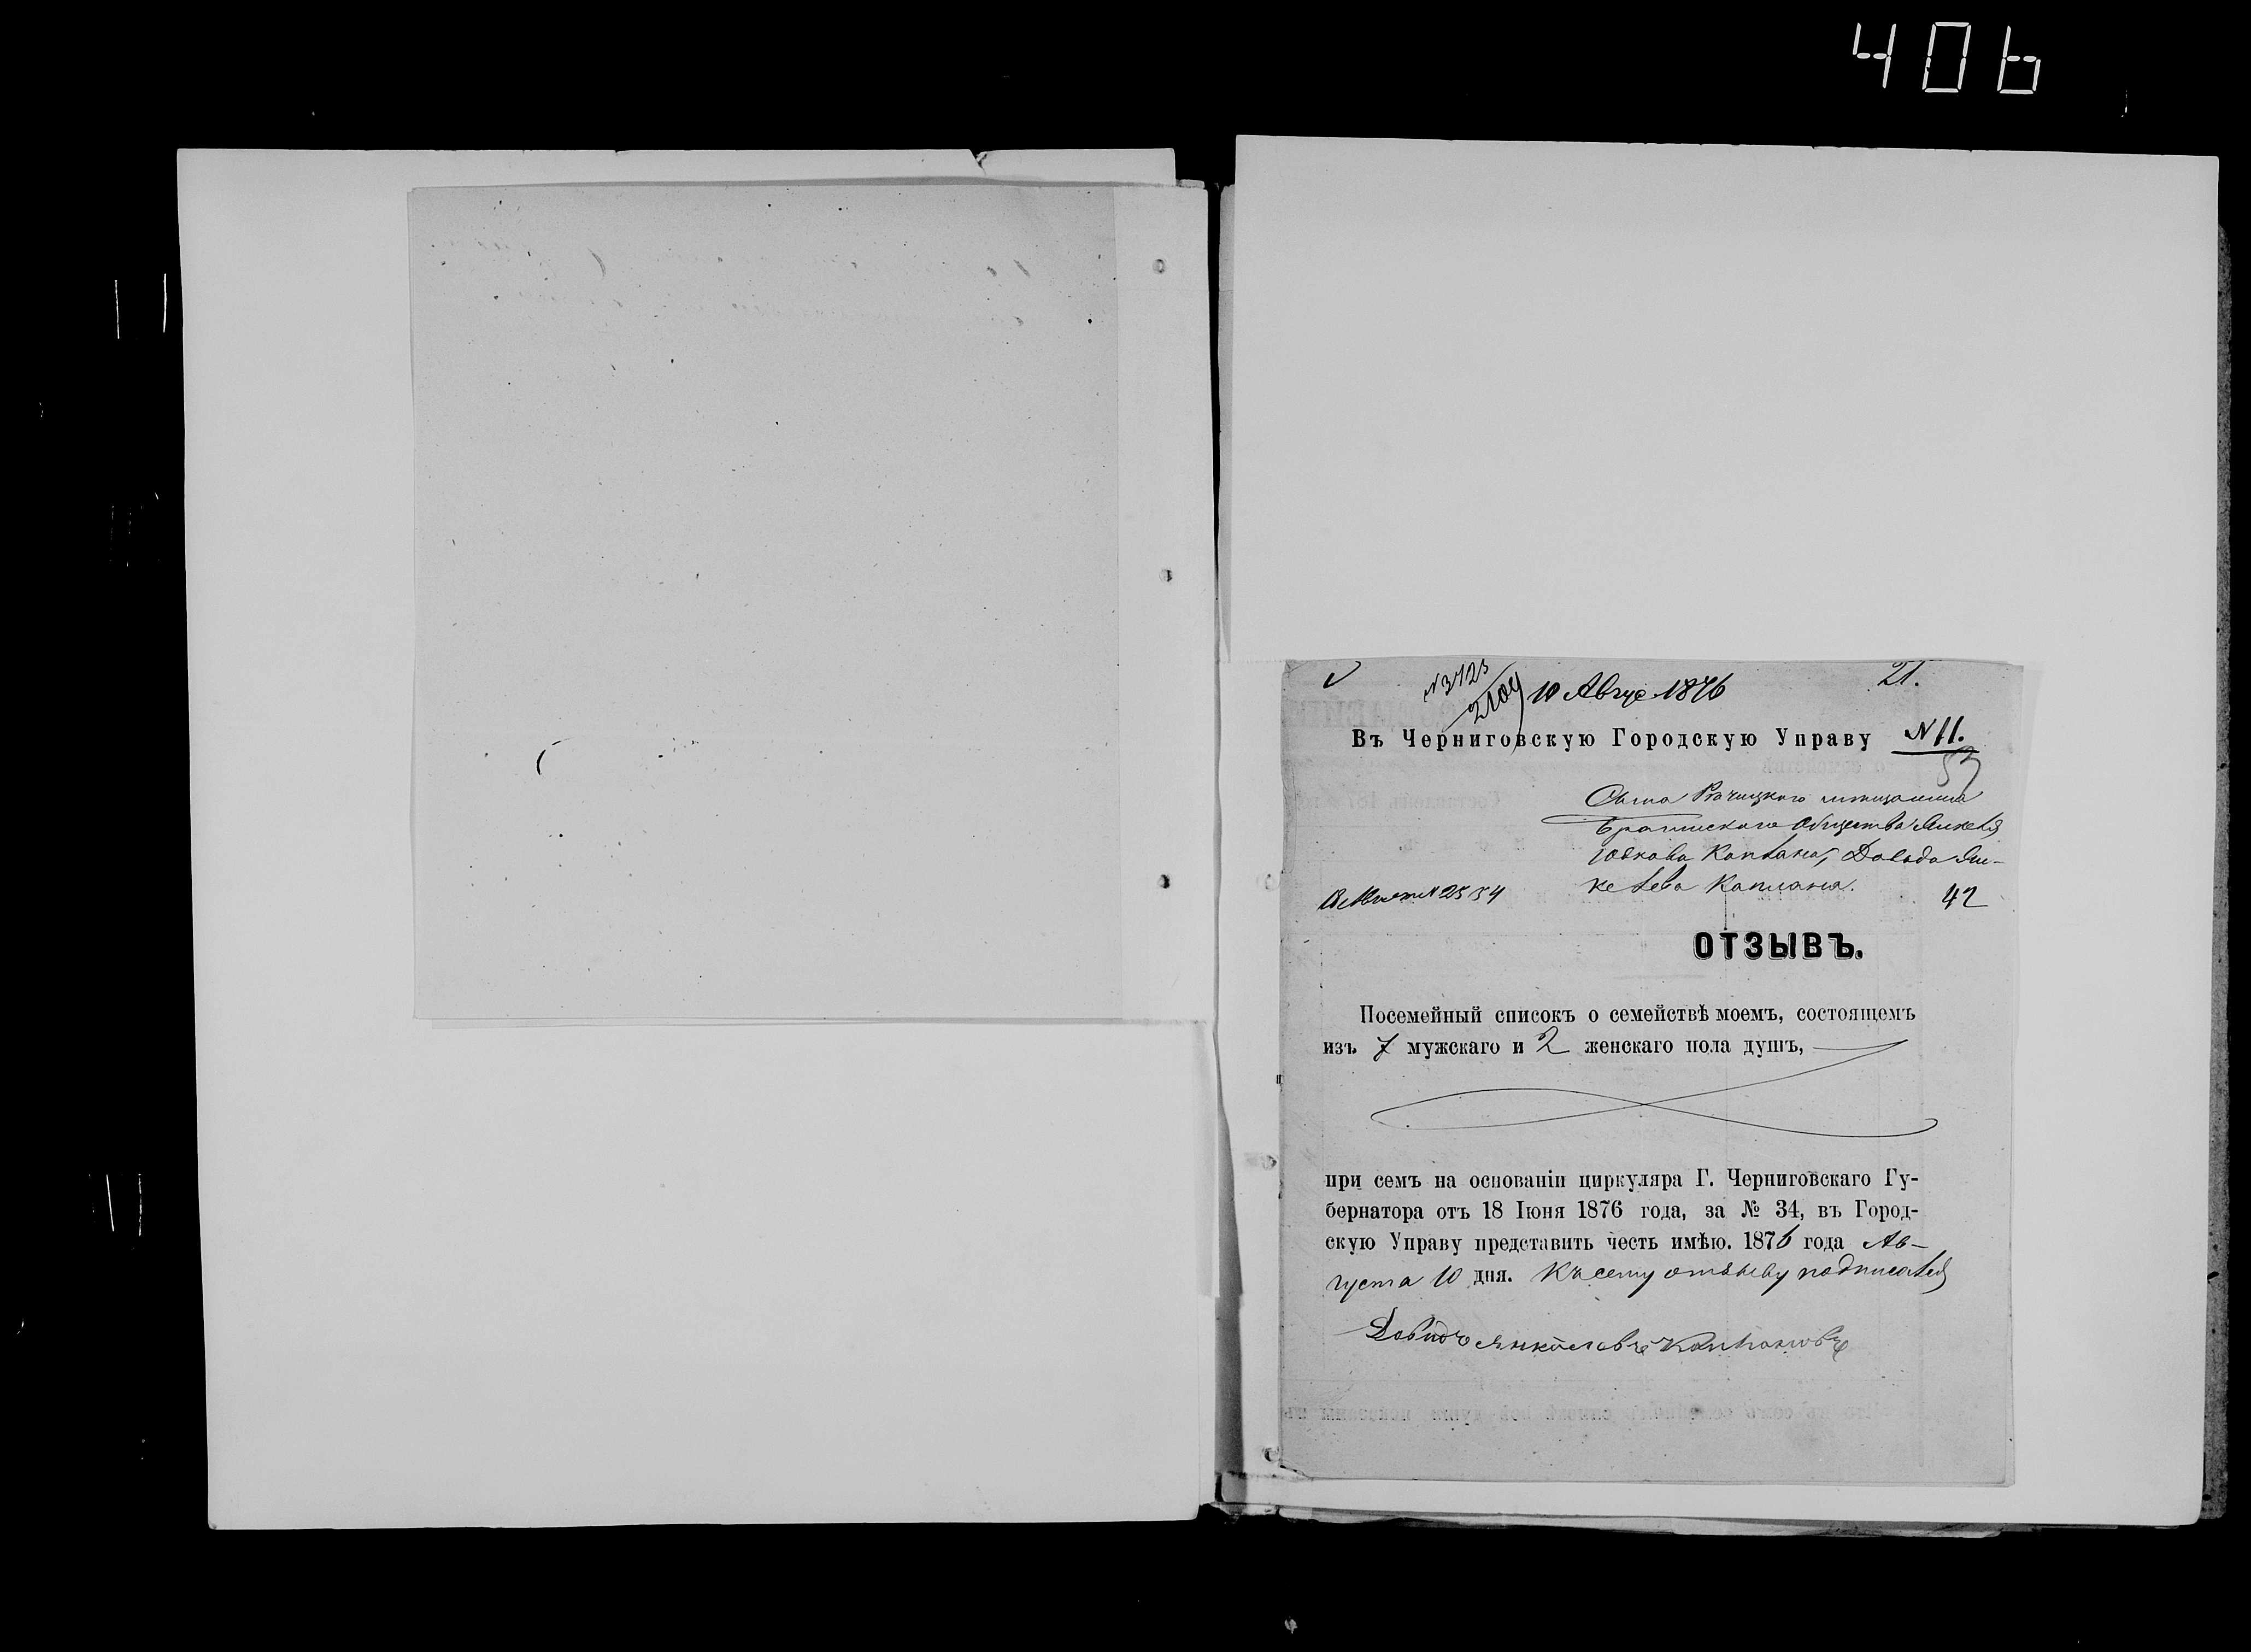 406
21.
№ 3723
10 Авгус 1876
Въ Черниговскую Городскую Управу № 11.
Сына Рѣчицкаго мѣщанина
Брагинскаго Общества Янкеля
Юдкова Каплана, Довида Ян-
келева Каплана.
42
ОТЗЫВЪ.
Посемейный списокъ о семействѣ моемъ, состоящемъ
изъ 7 мужскаго и 2 женскаго пола душъ,
при семъ на основаніи циркуляра Г. Черниговскаго Гу-
бернатора отъ 18 Іюня 1876 года, за № 34, въ Город-
скую Управу представить честь имѣю. 1876 года Ав-
густа 10 дня. Къ сему отзыву подписался
Довидъ Янкелевъ Каплановъ